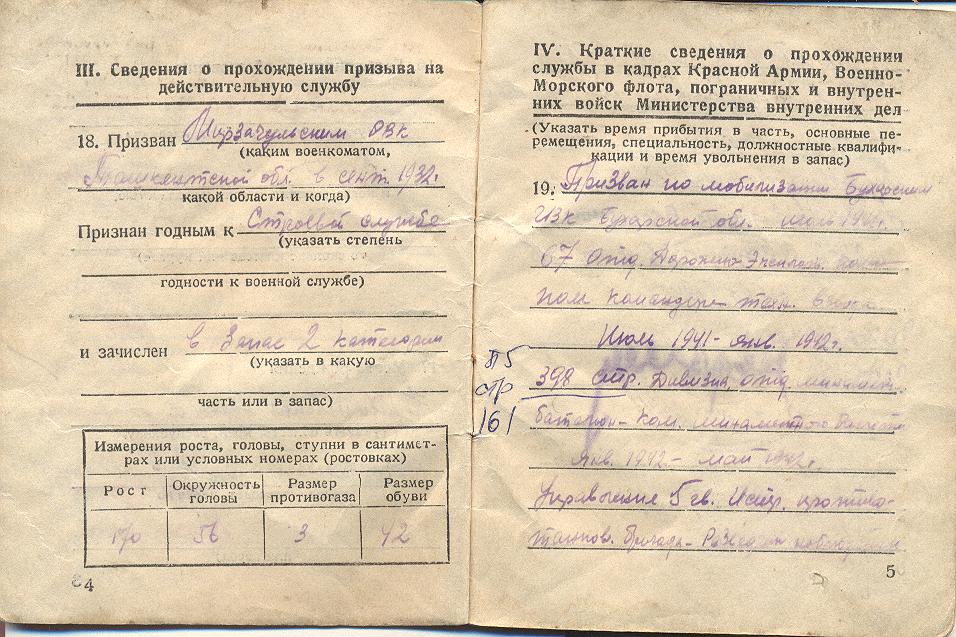 III. Сведения о прохождении призыва на
действительную службу
18. Призван Мирзачульским РВК
(каким военкоматом,
Ташкентской обл. в сент. 1932г.
какой области и когда)
Признан годным к Строевой службе
(указать степень
годности к военной службе)
и зачислен в Запас 2 категории
(указать в какую
часть или в запас)
Измерения роста, головы, ступни в сантимет-
рах или условных номерах (ростовках)
Рост Окружность головы Размер противогаза Размер обуви
170 56 3 42
4
IV. Краткие сведения о прохождении
службы в кадрах Красной Армии, Военно-
Морского флота, пограничных и внутрен-
них войск Министерства внутренних дел
(Указать время прибытия в часть, основные пе-
ремещения, специальность, должностные квалифи-
кации и время увольнения в запас)
19. Призван по мобилизации Бухарским
ГВК Бухарской обл. июль
67 отд. Дорожно
пом командира техн. взвода
Июль 1941 - янв. 1942г.
П5
стр
161
398 стр. Дивизия, отд. миномет.
батальон - ком. минометного
Янв. 1942 - май 1942г.
Управление 5 гв. Истр. противо-
танков. бригада -
5